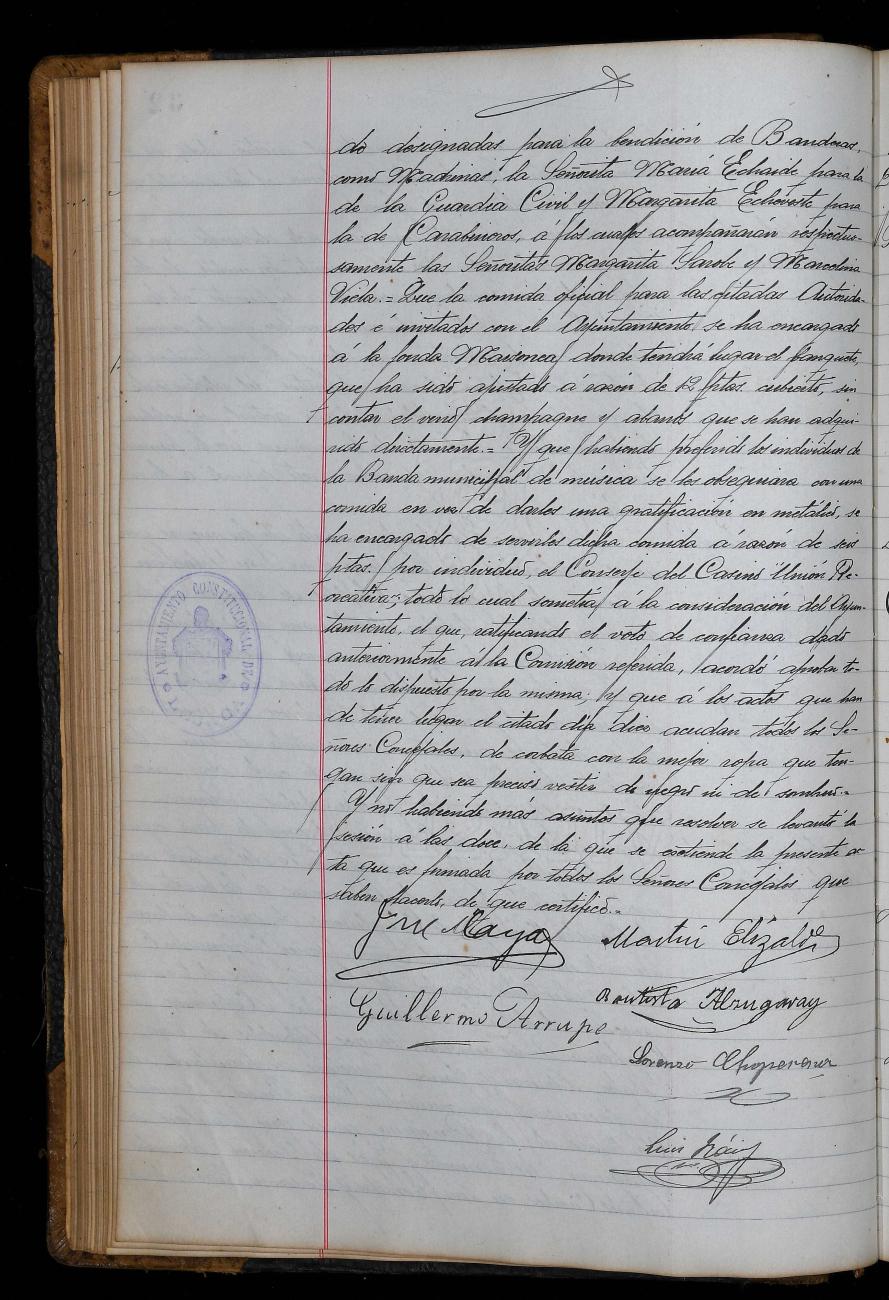 do designadas para la bendición de Banderas,
como Madrinas, la Señorita María Echaide para la
de la Guardia Civil y Margarita Echeveste para
la de Carabineros, a los cuales acompañarán respectuo-
samente las Señoritas Margarita Sarobe y Marcelina
Vicla.= Que la comida oficial para las citadas Autorida-
des é invitados con el Ayuntamiento, se ha encargado
á la fonda Maisonea, donde tendrá lugar el banquete,
que ha sido ajustado á razón de 12 ptas. cubierto, sin
contar el vino, champagne y abanos que se han adqui-
rido directamente.= Y que habiendo preferido los individuos de
la Banda municipal de música se les obsequiara con una
comida en vez de darles una gratificación en metálico, se
ha encargado de servirles dicha comida á razón de seis
ptas. por individuo, el Conserje del Casino "Unión Re-
creativa"; todo lo cual sometía á la consideración del Ayun-
tamiento, el que, ratificando el voto de confianza dado
anteriormente á la Comisión referida, acordó aprobar to-
do lo dispuesto por la misma; y que á los actos que han
de tener lugar el citado día diez acudan todos los Se-
ñores Concejales, de corbata con la mejor ropa que ten-
gan sin que sea preciso vestir de negro ni de sombrero.=
Y no habiendo más asuntos que resolver se levantó la
sesión á las doce, de la que se extiende la presente ac-
ta que es firmada por todos los Señores Concejales que
saben hacerlo, de que certifico.=
José Maya Martín Elizalde
Guillermo Arrupe Bautista Alzugaray
Lorenzo Choperena
Luis
AYUNTAMIENTO CONSTITUCIONAL DE